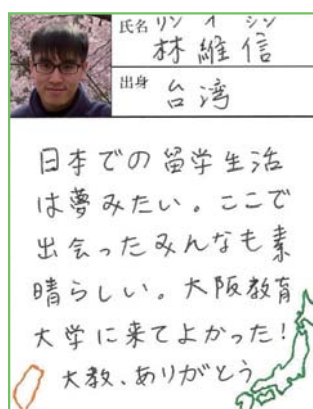 氏名 リン イ シン
林維信
出身 台湾
日本での留学生活
は夢みたい。ここで
出会ったみんなも素
晴らしい。大阪教育
大学に来てよかった！
大教、ありがとう